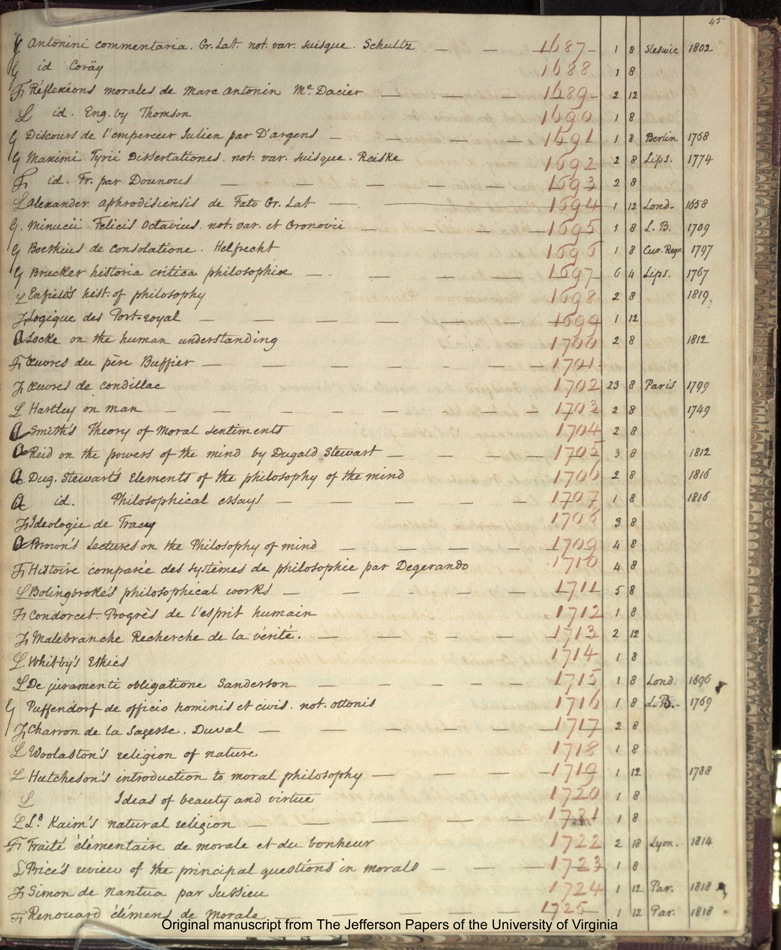 45
G Antonini commentaria. Gr. Lat. not. var. suisque. Schultz — — 1687 - 1 8 Sleswic 1802
G id Coräy 1688 1 8
F Réflexions morales de Marc Antonin Me. Dacier — — — 1689 - 2 12
L id. Eng. by Thomson 1690 1 8
G Discours de l'empereur Julien par D'argens — — — 1691 1 8 Berlin 1768
G Maximi Tyrii Dissertationes. not. var. suisque. Reiske 1692 2 8 Lips. 1774
F id. Fr. par Dounous — — — 1693 2 8
L Alexander aphrodisiensis de Fato Gr. Lat — 1694 1 12 Lond- 1658
G. Minucii Felicis Octavius. not. var. et Gronovii — — — 1695 1 8 L. B. 1709
G Boethius de Consolatione. Helfrecht 1696 1 8 Cur. Regn. 1797
G Brucker historia critica philosophiae — — — 1697 - 6 4 Lips. 1767
L Enfield's hist. of philosophy 1698 2 8 1819.
F Logique des Port-royal — — — 1699 1 12
A Locke on the human understanding 1700 2 8 1812
F Œuvres du père Buffier — — — 1701.
F Œuvres de Condillac 1702 23 8 Paris 1799
L Hartley on man — — — 1703 2 8 1749
A Smith's Theory of Moral sentiments 1704 2 8
A Reid on the powers of the mind by Dugald Stewart — — — 1705 3 8 1812
A Dug. Stewart's Elements of the philosophy of the mind 1706 2 8 1816
A id. Philosophical essays — — — 1707 1 8 1816
F Ideologie de Tracy 1708 3 8
A Brown's Lectures on the Philosophy of mind — — — 1709 4 8
F Histoire comparée des systèmes de philosophie par Degerando 1710 4 8
L Bolingbroke's philosophical works — — — 1711 5 8
F Condorcet. Progrès de l'esprit humain 1712 1 8
F Malebranche Recherche de la verité. — — — 1713 2 12
L Whitby's Ethics 1714 1 8
L De juramenti obligatione Sanderson — — — 1715 1 8 Lond. 1696
G Puffendorf de officio hominis et civis. not. Ottonis 1716 1 8 L. B. - 1769
F Charron de la Sagesse. Duval — — — 1717 2 8
L Woolaston's religion of nature 1718 1 8
L Hutcheson's introduction to moral philosophy — — — 1719 1 12 1788
L Ideas of beauty and virtue 1720 1 8
L Ld. Kaim's natural religion — — — 1721 1 8
F Traité élémentaire de morale et du bonheur 1722 2 18 Lyon. 1814
L Price's review of the principal questions in morals — — — 1723 1 8
F Simon de Nantua par Jussieu 1724 1 12 Par. 1818
F Renouard élémens de morale — — — 1725 - 1 12 Par. 1818
Original manuscript from The Jefferson Papers of the University of Virginia